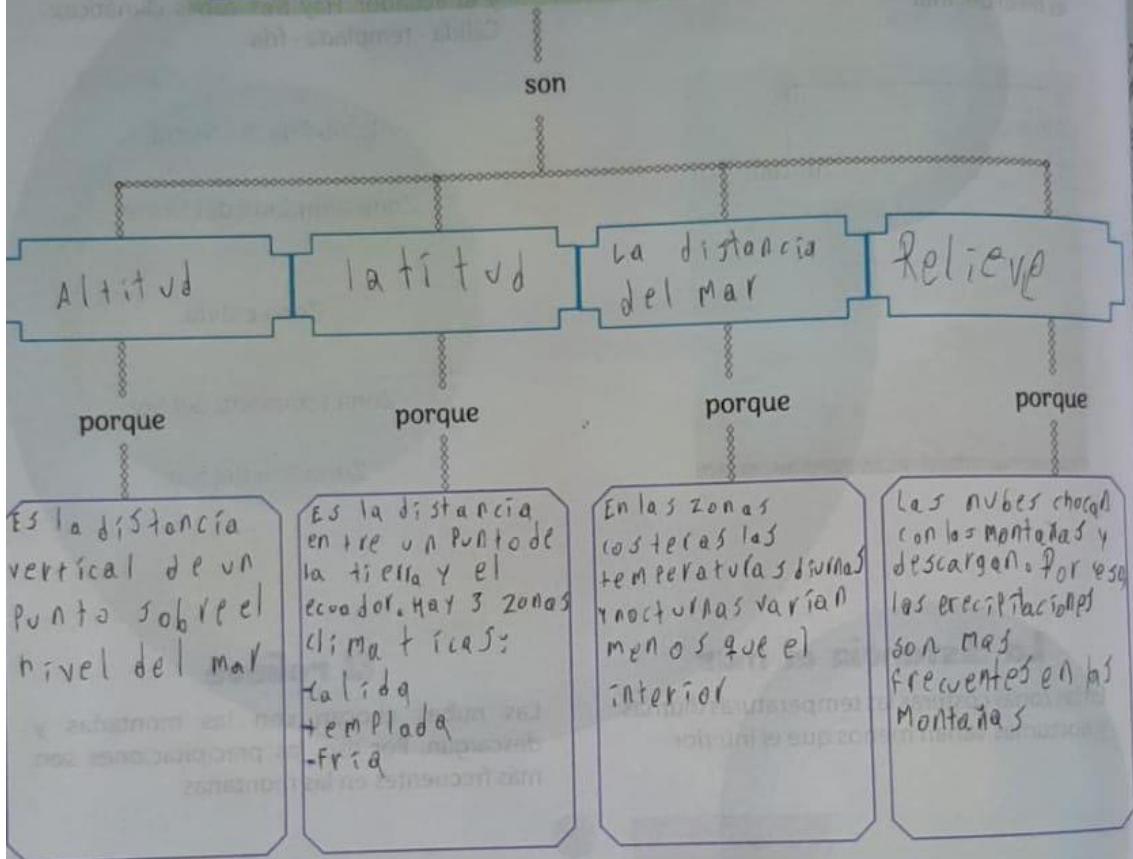 son
Altitud
latitud
La distancia
del mar
Relieve
porque
porque
porque
porque
Es la distancia
vertical de un
Punto sobre el
nivel del mar
Es la distancia
entre un Punto de
la tierra y el
ecuador. Hay 3 zonas
climaticas:
-calida
-templada
-Fría
En las zonas
costeras las
temperaturas diurnas
y nocturnas varían
menos que el
interior
Las nubes chocan
con las montañas y
descargan. Por eso
las erecipitaciones
son mas
frecuentes en las
Montañas